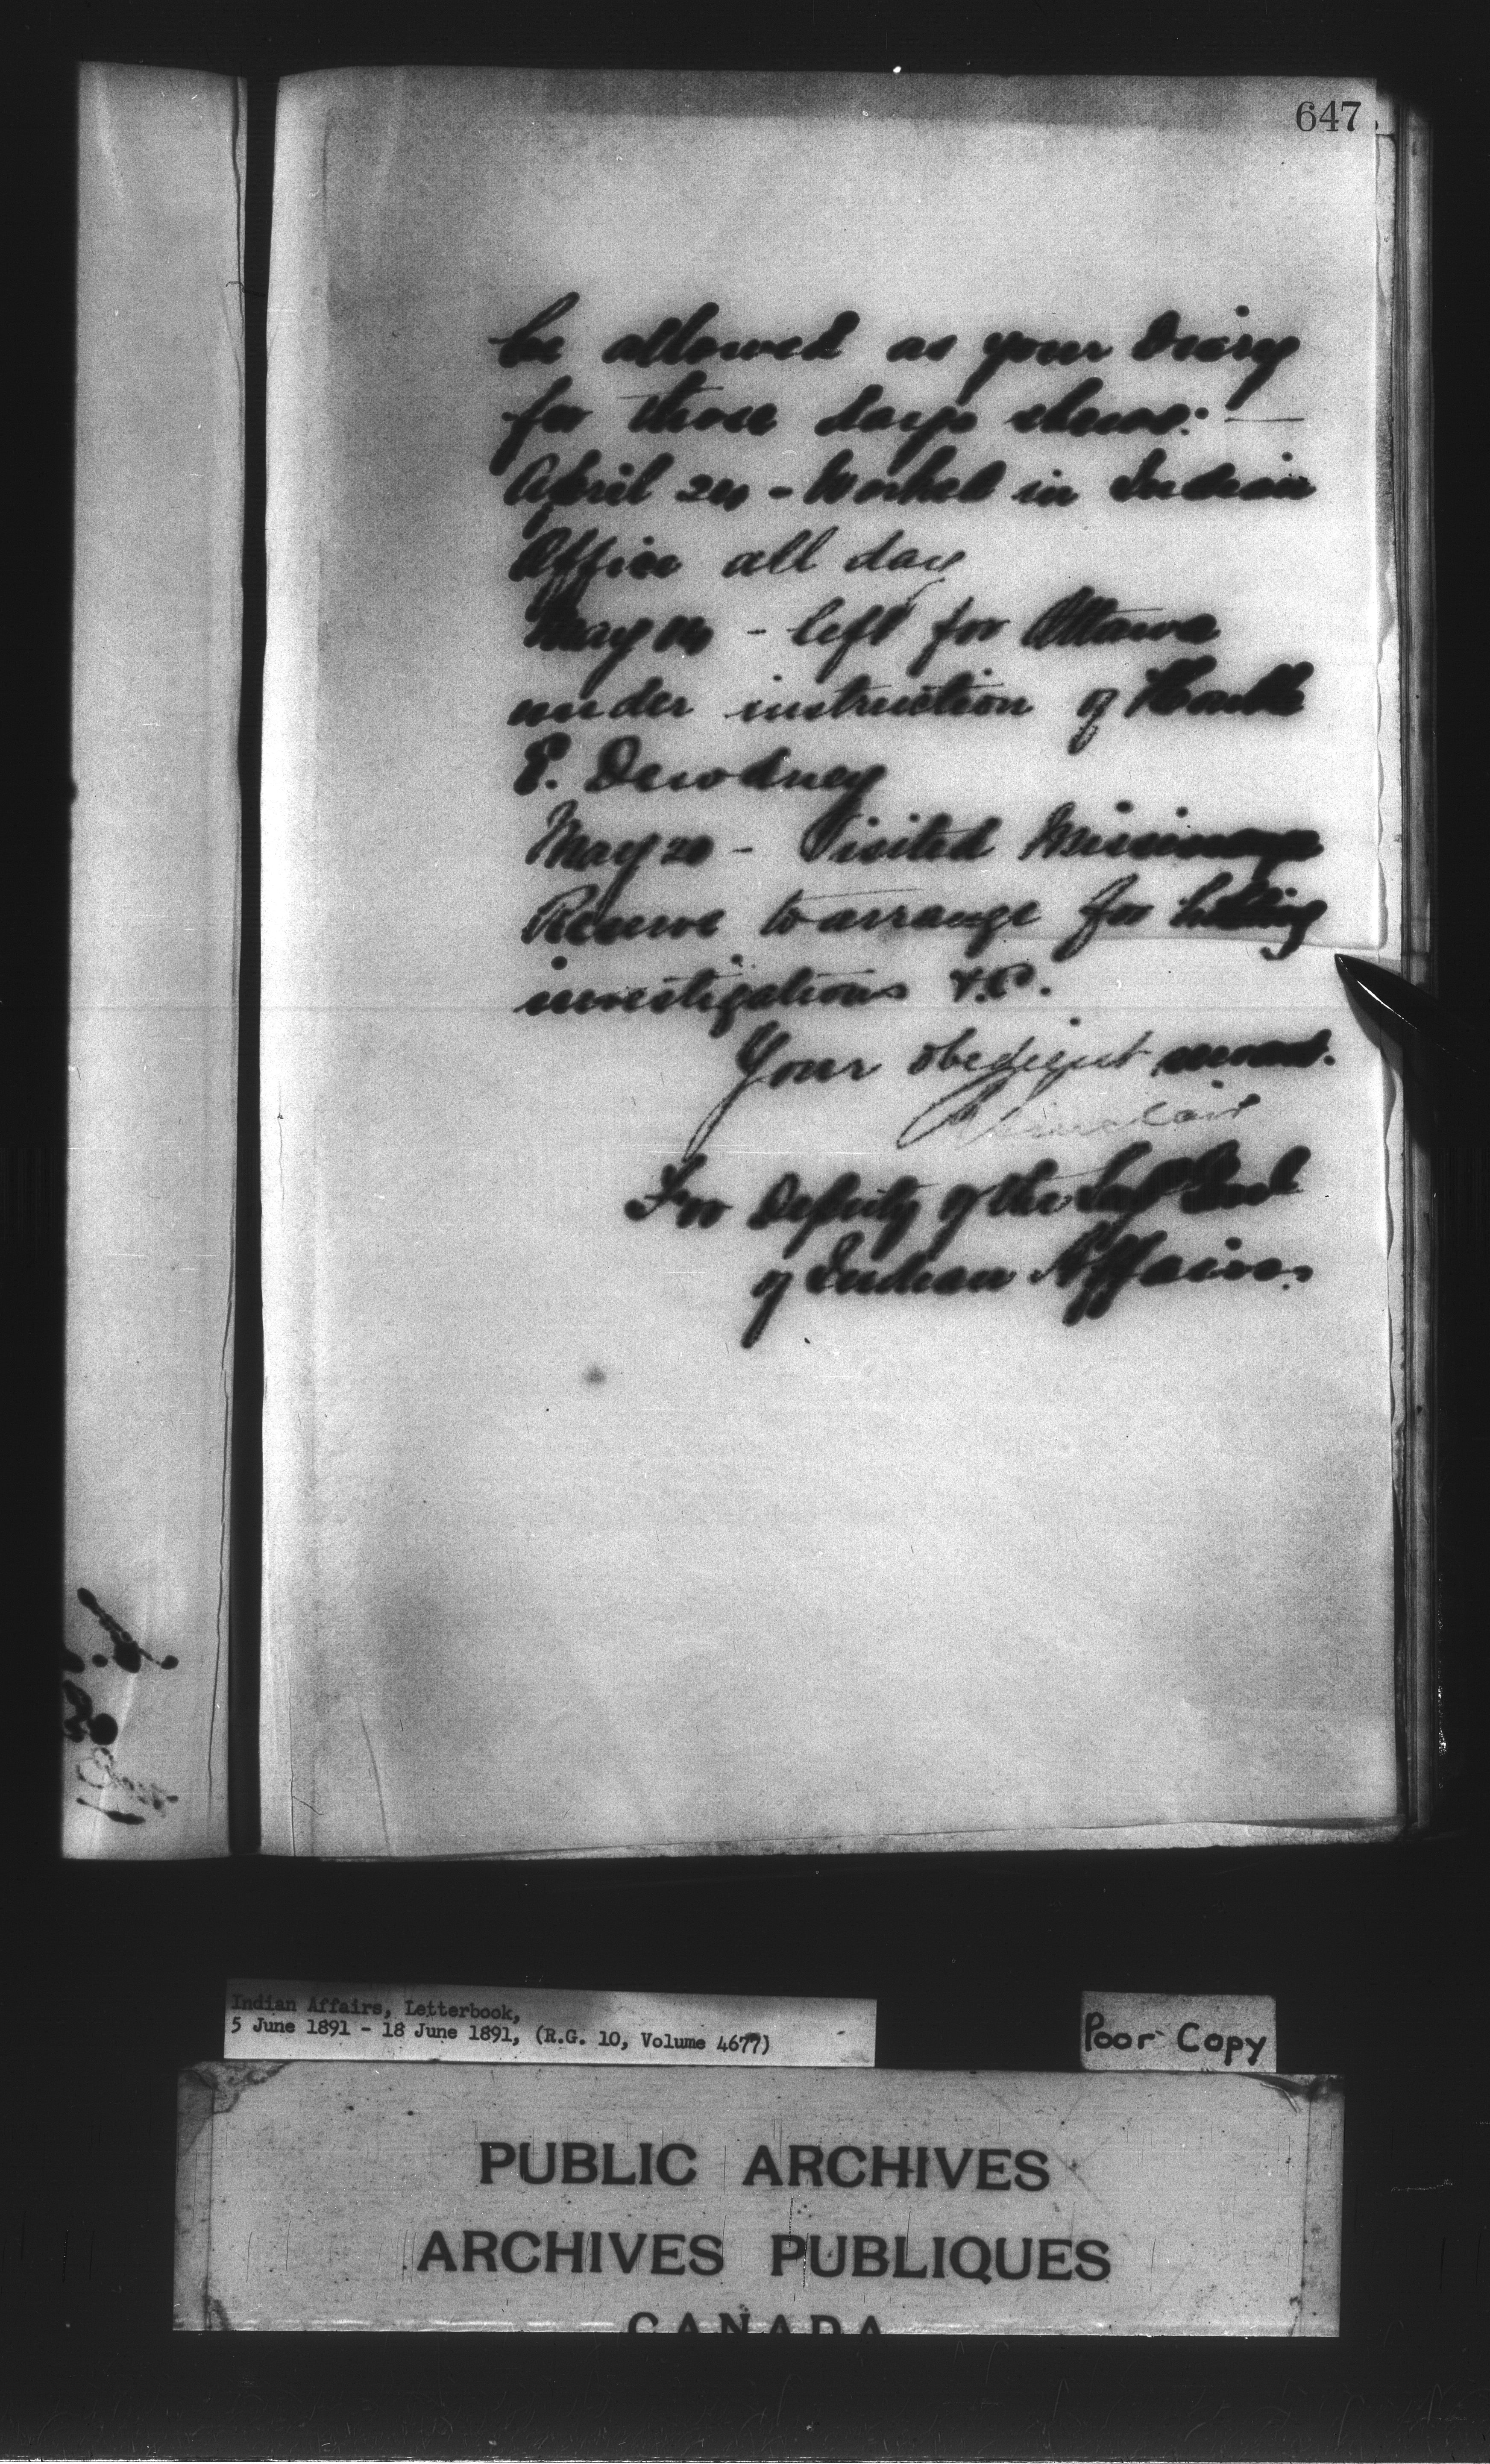 647
be allowed as your Diary
for those days shews:—
April 24 - Worked in Indian
Office all day
May 14 - left for Ottawa
under instruction of Honble
E. Dewdney
May 20 - Visited
Reserve to arrange for holding
investigations &c.
Your obedient servant.
R Sinclair
For Deputy of the Supt Genl
of Indian Affairs.
Indian Affairs, Letterbook,
5 June 1891 - 18 June 1891, (R.G. 10, Volume 4677)
Poor Copy
PUBLIC ARCHIVES
ARCHIVES PUBLIQUES
CANADA